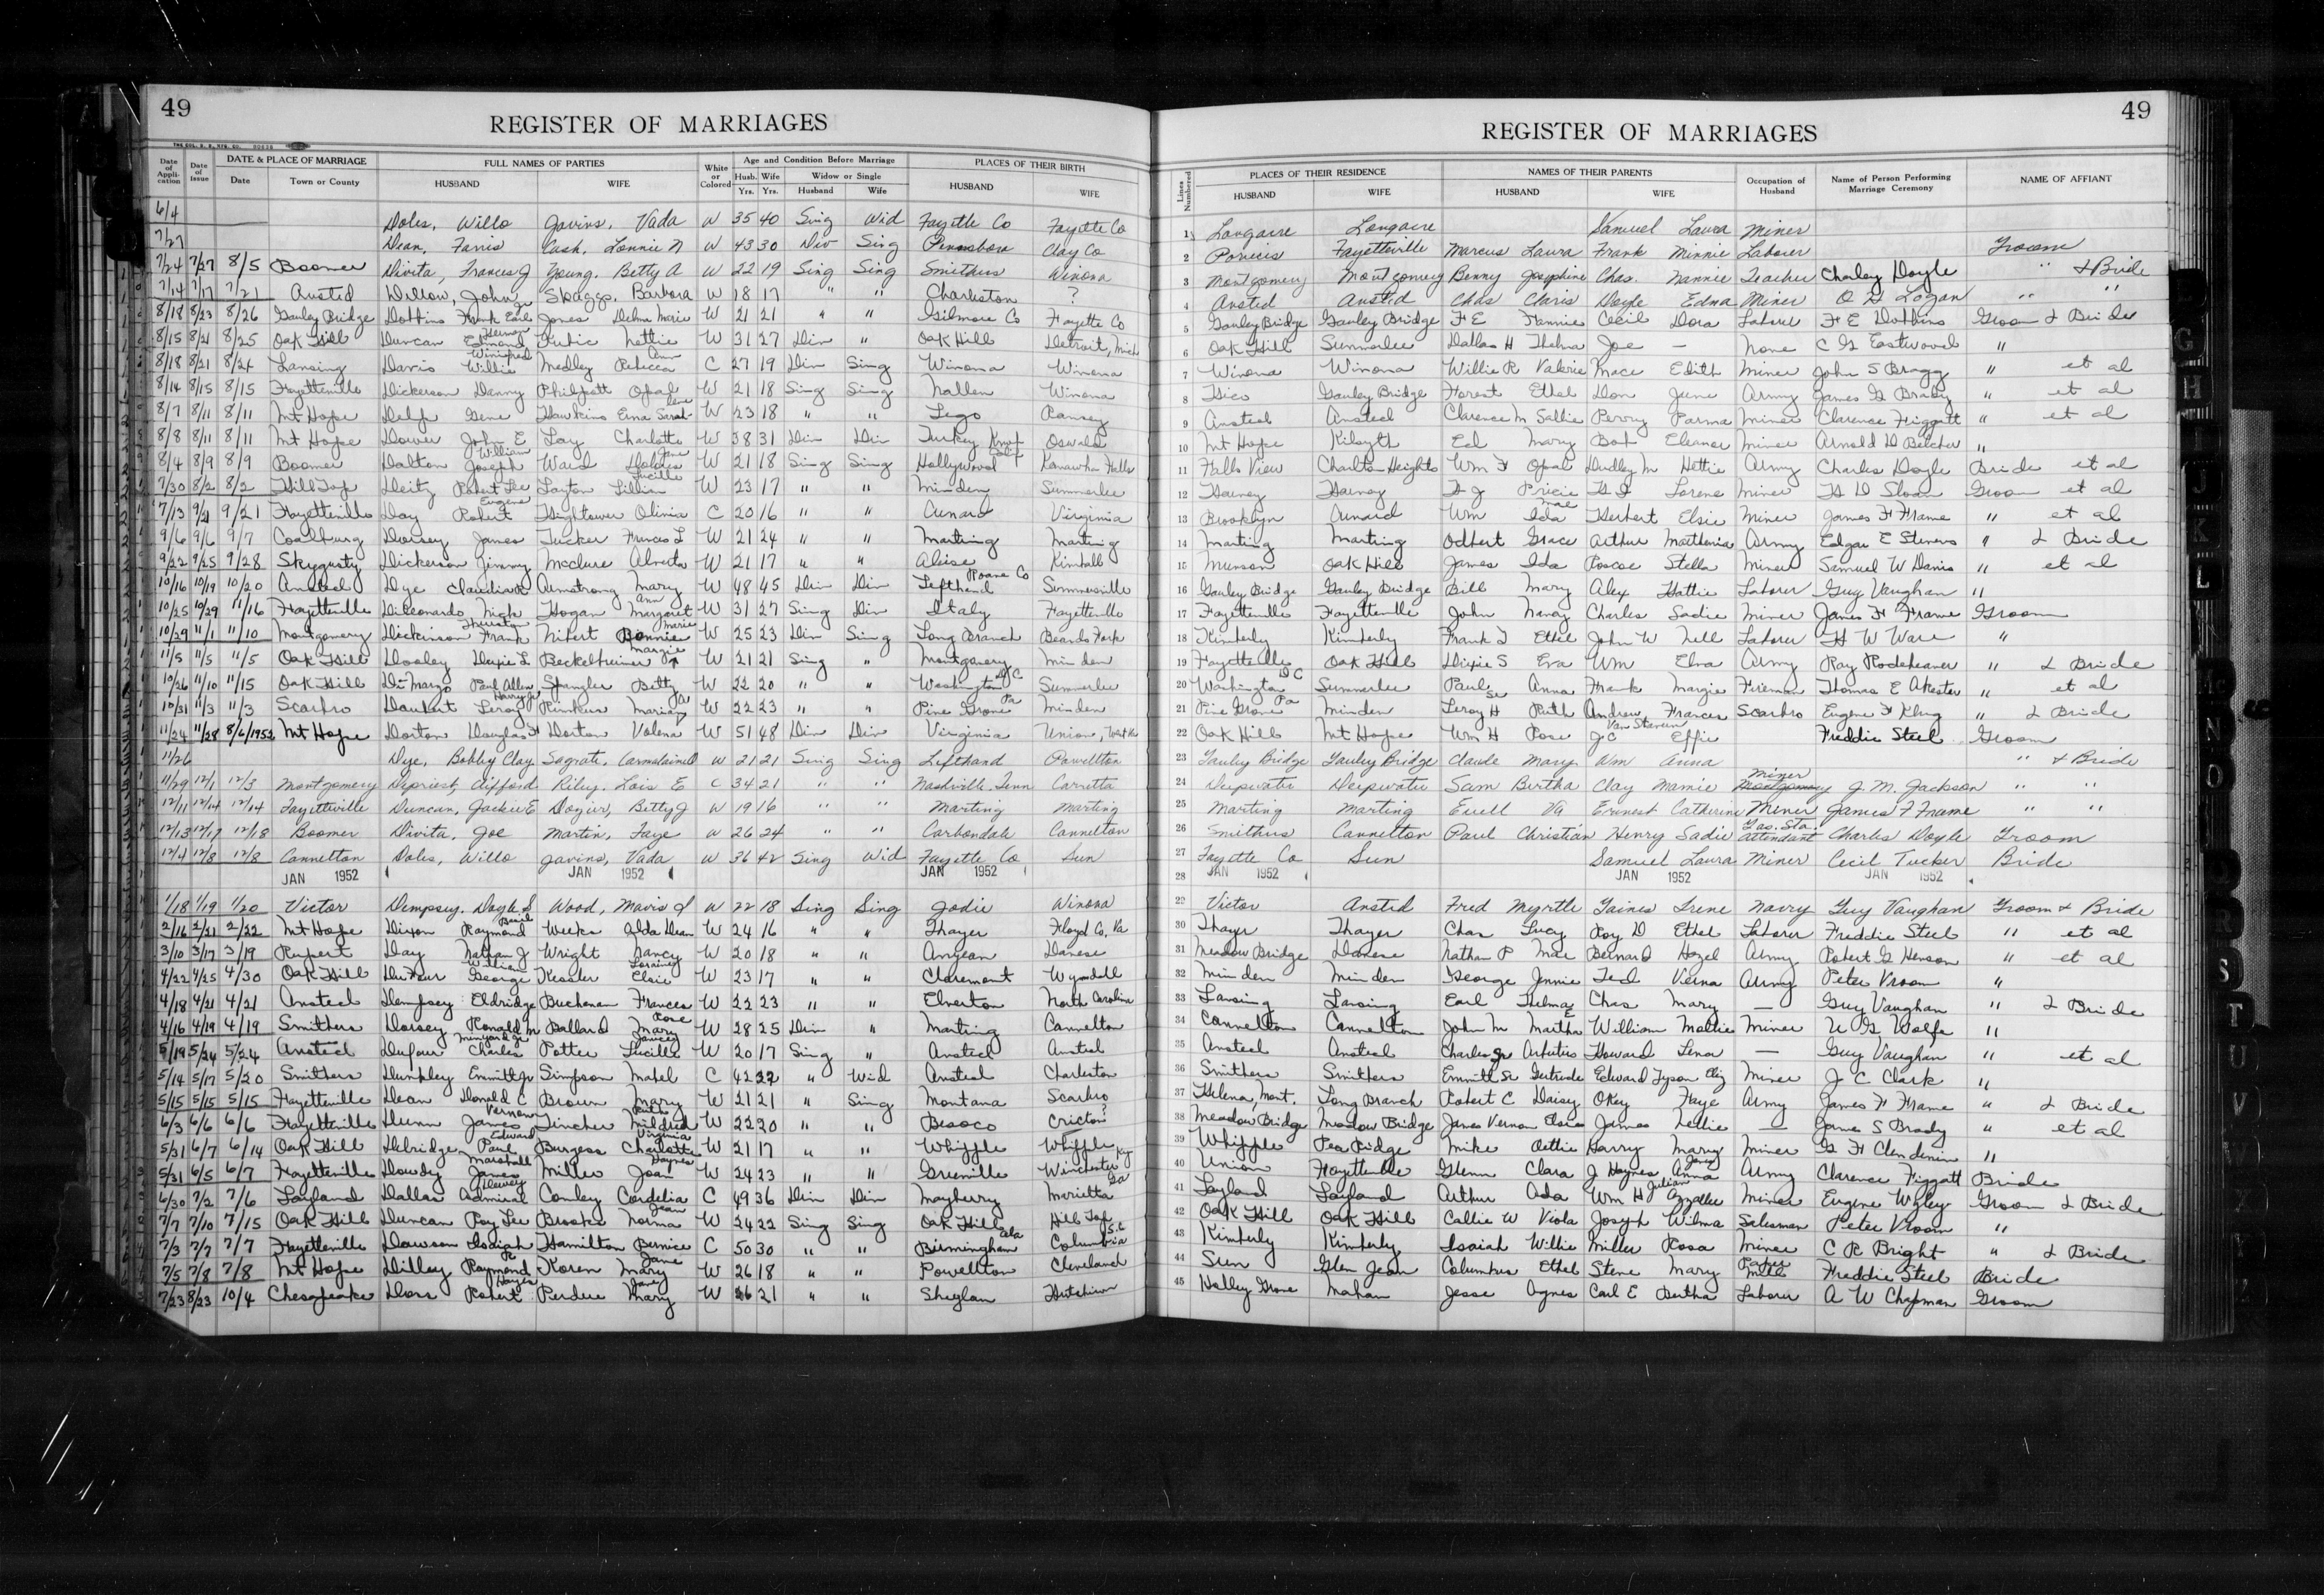 49
REGISTER OF MARRIAGES
Date of Application Date of Issue DATE & PLACE OF MARRIAGE Date Town or County FULL NAMES OF PARTIES HUSBAND WIFE White or Colored Age and Condition Before Marriage Husb. Yrs. Wife Yrs. Widow or Single Husband Wife PLACES OF THEIR BIRTH HUSBAND WIFE
6/4 Doles, Willo Javins, Vada W 35 40 Sing Wid Fayette Co Fayette Co
7/27 Dean, Farris Cash, Lonnie N W 43 30 Div Sing Pennsboro Clay Co
7/24 7/27 8/5 Boomer Divita, Frances J Young, Betty A W 22 19 Sing Sing Smithers Winona
7/14 7/17 7/21 Ansted Dillow, John Jr Skaggs, Barbara W 18 17 " " Charleston ?
8/18 8/23 8/26 Gauley Bridge Dobbins Frank Earl Jones Delma Marie W 21 21 " " Gilmore Co Fayette Co
8/15 8/21 8/25 Oak Hill Duncan Edmond Herman Nettie W 31 27 Div " Oak Hill Detroit, Mich
8/18 8/21 8/24 Lansing Davis Willie Winifred Medley Rebecca Ann C 27 19 Div Sing Winona Winona
8/14 8/15 8/15 Fayetteville Dickerson Danny Philpott Opal W 21 18 Sing Sing Nallen Winona
8/7 8/11 8/11 Mt Hope Delp Gene Hawkins Erna Sarah W 23 18 " " Lego Ramsey
8/8 8/11 8/11 Mt Hope Dower John E Lay Charlotte W 38 31 Div Div Turkey Knob Oswald
8/4 8/9 8/9 Boomer Dalton Joseph William Ward Dolores Jane W 21 18 Sing Sing Hollywood Calif Kanawha Falls
7/30 8/2 8/2 Hill Top Deitz Robert Lee Layton Lillian Lucille W 23 17 " " Minden Summerlee
7/13 9/21 9/21 Fayetteville Day Robert Eugene Hightower Olivia C 20 16 " " Cunard Virginia
9/6 9/6 9/7 Coalburg Dorsey James Tucker Frances L W 21 24 " " Marting Marting
9/22 9/25 9/28 Skygusty Dickerson Jimmy McClure Alverta W 21 17 " " Kimball
10/16 10/19 10/20 Ansted Dye Claudia R Armstrong Mary W 48 45 Div Div Lefthand Roane Co Summersville
10/25 10/29 11/16 Fayetteville DiLeonardo Nick Hogan Margaret Ann W 31 27 Sing Div Italy Fayetteville
10/29 11/1 11/10 Montgomery Dickinson Frank Thurston Nibert Bonnie Marie W 25 23 Div Sing Long Branch Beards Fork
11/5 11/5 11/5 Oak Hill Dooley Dixie L Beckelheimer Margie W 21 21 Sing " Montgomery Minden
10/26 11/10 11/15 Oak Hill Di-Marzo Paul Allen Spangler Betty W 22 20 " " Washington D C Summerlee
10/31 11/3 11/3 Scarbro Daubert Leroy Harry Jr Rinkus Marian W 22 23 " " Pine Grove Pa Minden
11/24 11/28 8/6/1952 Mt Hope Dorton Douglas H Dorton Valena W 51 48 Div Div Virginia Union, West Va
11/26 Dye, Bobby Clay W 21 21 Sing Sing Lefthand Powellton
11/29 12/1 12/3 Montgomery Depriest, Clifford Riley, Lois E C 34 21 " " Nashville, Tenn Carretta
12/11 12/14 12/14 Fayetteville Duncan, Jackie E Dozier, Betty J W 19 16 " " Marting Marting
12/13 12/17 12/18 Boomer Divita, Joe Martin, Faye W 26 24 " " Carbondale Cannelton
12/4 12/8 12/8 Cannelton Doles, Willo Javins, Vada W 36 42 Sing Wid Fayette Co Sun
JAN 1952 JAN 1952 JAN 1952
1/18 1/19 1/20 Victor Dempsey, Doyle S Wood, Mavis J W 22 18 Sing Sing Jodie Winona
2/16 2/21 2/22 Mt Hope Dixon Raymond Basil Weeks Zelda Dean W 24 16 " " Thayer Floyd Co, Va
3/10 3/17 3/19 Rupert Day Nathan J Wright Nancy W 20 18 " " Anjean Danese
4/22 4/25 4/30 Oak Hill George William Kessler Elsie W 23 17 " " Claremont Wyndall
4/18 4/21 4/21 Ansted Dempsey Eldridge Buchanan Frances W 22 23 " " Elverton North Carolina
4/16 4/19 4/19 Smithers Dorsey Ronald M Ballard Mary Rose W 28 25 Div " Marting Cannelton
5/19 5/24 5/24 Ansted Dufour Charles Minyard Jr Potter Lucille W 20 17 Sing " Ansted Ansted
5/14 5/17 5/20 Smithers Dunkley Emmitt Jr Simpson Mabel C 42 22 " Wid Ansted Charleston
5/15 5/15 5/15 Fayetteville Dean Donald C Brown Mary W 21 21 " Sing Montana Scarbro
6/3 6/6 6/6 Fayetteville Dunn James Vernon Tincher Mildred Ruth W 22 20 " " Besoco Cricton?
5/31 6/7 6/14 Oak Hill Debridge Paul Edward Burgess Charlotte Virginia W 21 17 " " Whipple Whipple
5/31 6/5 6/7 Fayetteville Dowdy James Marshall Miller Joan Haynes W 24 23 " " Grenville Winchester Ky
6/30 7/2 7/6 Layland Dallas Admiral Dewey Conley Cordelia C 49 36 Div Div Mayberry Marietta Ga
7/7 7/10 7/15 Oak Hill Duncan Roy Lee Brooks Norma Jean W 24 22 Sing Sing Oak Hill Hill Top
7/3 7/7 7/7 Fayetteville Dawson Isaiah Hamilton Bernice C 50 30 " " Birmingham Ala Columbia S.C
7/5 7/8 7/8 Mt Hope Dilley Raymond R Koren Mary Jane W 26 18 " " Powellton Cleveland
7/23 8/23 10/4 Chesapeake Doss Robert Hayes Perdue Mary Janey W 26 21 " " Sheylan Hutchison
49
REGISTER OF MARRIAGES
Lines Numbered PLACES OF THEIR RESIDENCE HUSBAND WIFE NAMES OF THEIR PARENTS HUSBAND WIFE Occupation of Husband Name of Person Performing Marriage Ceremony NAME OF AFFIANT
1 Longacre Longacre Samuel Laura Miner
2 Fayetteville Marcus Laura Frank Minnie Laborer Groom
3 Montgomery Montgomery Benny Josephine Chas. Nannie Teacher Charley Doyle " & Bride
4 Ansted Ansted Chas Claris Doyle Edna Miner O H Logan " "
5 Gauley Bridge Gauley Bridge F E Fannie Cecil Dora Laborer F E Dobbins Groom & Bride
6 Oak Hill Summerlee Dallas H Thelma Joe — None C G Eastwood "
7 Winona Winona Willie R Valerie Mace Edith Miner John S Bragg " et al
8 Hico Gauley Bridge Forest Ethel Don June Army James G Brady " et al
9 Ansted Ansted Clarence M Sallie Perry Parma Miner Clarence Figgatt " et al
10 Mt Hope Kilsyth Ed Mary Bob Eleanor Miner Arnold D Belcher "
11 Falls View Charlton Heights Wm F Opal Dudley M Hettie Army Charles Doyle Bride et al
12 Harvey Harvey H J Pricie H D Lorene Miner H D Sloan Groom et al
13 Brooklyn Cunard Wm Ida Mae Herbert Elsie Miner James F Frame " et al
14 Marting Marting Odbert Grace Arthur Mathenia Army Edgar E Stevens " & Bride
15 Munson Oak Hill James Ida Roscoe Stella Miner Samuel W Davis " et al
16 Gauley Bridge Gauley Bridge Bill Mary Alex Hattie Laborer Guy Vaughan "
17 Fayetteville Fayetteville John Nancy Charles Sadie Miner James F Frame Groom
18 Kimberly Kimberly Frank T Ethel John W Nell Laborer H W Ware "
19 Fayetteville Oak Hill Dixie S Eva Wm Elva Army Ray Rodeheaver " & Bride
20 Washington D C Summerlee Paul Sr Anna Frank Margie Fireman Thomas E Akester " et al
21 Pine Grove Pa Minden Leroy H Ruth Andrew Frances Scarbro Eugene F Klug " & Bride
22 Oak Hill Mt Hope Wm H Rose J C Van Steven Effie Freddie Steel Groom
23 Gauley Bridge Gauley Bridge Claude Mary Wm Anna " & Bride
24 Deepwater Deepwater Sam Bertha Clay Mamie Miner Montgomery J. M. Jackson " "
25 Marting Marting Euell Va Earnest Catherine Miner James F Frame " "
26 Smithers Cannelton Paul Christian Henry Sadie Gas. Sta. Attendant Charles Doyle Groom
27 Fayette Co Sun Samuel Laura Miner Cecil Tucker Bride
28 JAN 1952 JAN 1952 JAN 1952
22 Victor Ansted Fred Myrtle Gaines Irene Navy Guy Vaughan Groom & Bride
30 Thayer Thayer Chas Lucy Roy D Ethel Laborer Freddie Steel " et al
31 Meadow Bridge Danese Nathan P Mae Bernard Hazel Army Robert G Henson " et al
32 Minden Minden George Jennie Ted Verna Army Peter Vroom "
33 Lansing Lansing Earl Thelma Chas Mary — Guy Vaughan " & Bride
34 Cannelton Cannelton John M Martha E William Mollie Miner U G Wolfe "
35 Ansted Ansted Charles Jr Arbutus Howard Lena — Guy Vaughan " et al
36 Smithers Smithers Emmitt Sr Gertrude Edward Tyson Eliz Miner J C Clark "
37 Helena, Mont. Long Branch Robert C Daisy Okey Faye Army James F Frame " & Bride
38 Meadow Bridge Meadow Bridge James Vernon Elsie James Lellie — James S Brady " et al
39 Whipple Pea Ridge Mike Oettie Harry Mary Miner G F Clendenin "
40 Union Fayetteville Glenn Clara J Haynes Anna Army Clarence Figgatt Bride
41 Layland Layland Arthur Ada Wm H Julian Azzalee Miner Eugene Wyley Groom & Bride
42 Oak Hill Oak Hill Callie W Viola Joseph Wilma Salesman Peter Vroom "
43 Kimberly Kimberly Isaiah Willie Miller Rosa Miner C R Bright " & Bride
44 Sun Glen Jean Columbus Ethel Steve Mary Freddie Steel Bride
45 Holly Grove Mahan Jesse Agnes Carl E Bertha Laborer A W Chapman Groom
G
H
I
J
K
L
Mc
N
O
R
S
T
U
V